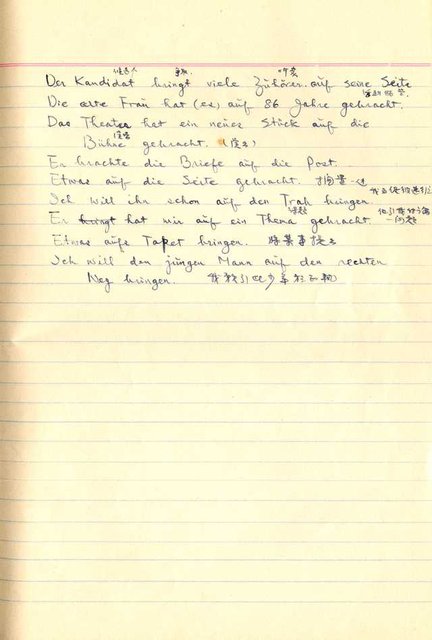 候选人 争取 听众
Der Kandidat bringt viele Zuhörer auf seine Seite
Die alte Frau hat (es) auf 86 Jahre gebracht.
Das Theater hat ein neues Stück auf die
Bühne gebracht.
Er brachte die Briefe auf die Post.
Etwas auf die Seite gebracht. 一边
Ich will ihn schon auf den Trab bringen.
Er bringt hat mir auf ein Thema gebracht.
Etwas aufs Tapet bringen. 将某事提出
Ich will den jungen Mann auf den rechten
Weg bringen.